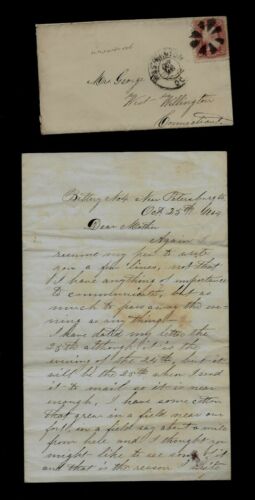 Mr. George
West Willington
Connecticut.
Battery No 4 Near Petersburg Va
Oct 25th 1864
Dear Mother
Again I
resume my pen to write
you a few lines, not that
I have anything of importance
to communicate, but as
much to pass away the eve-
ning as any thing
I have dated my letter the
25th although it is the
evening of the 24th, but it
will be the 25th when I send
it to mail so it is near
enough, I have some cotton
that grew in a field near our
fort, in a field say about a mile
from here and I thought you
might like to see some of it
and that is the reason I